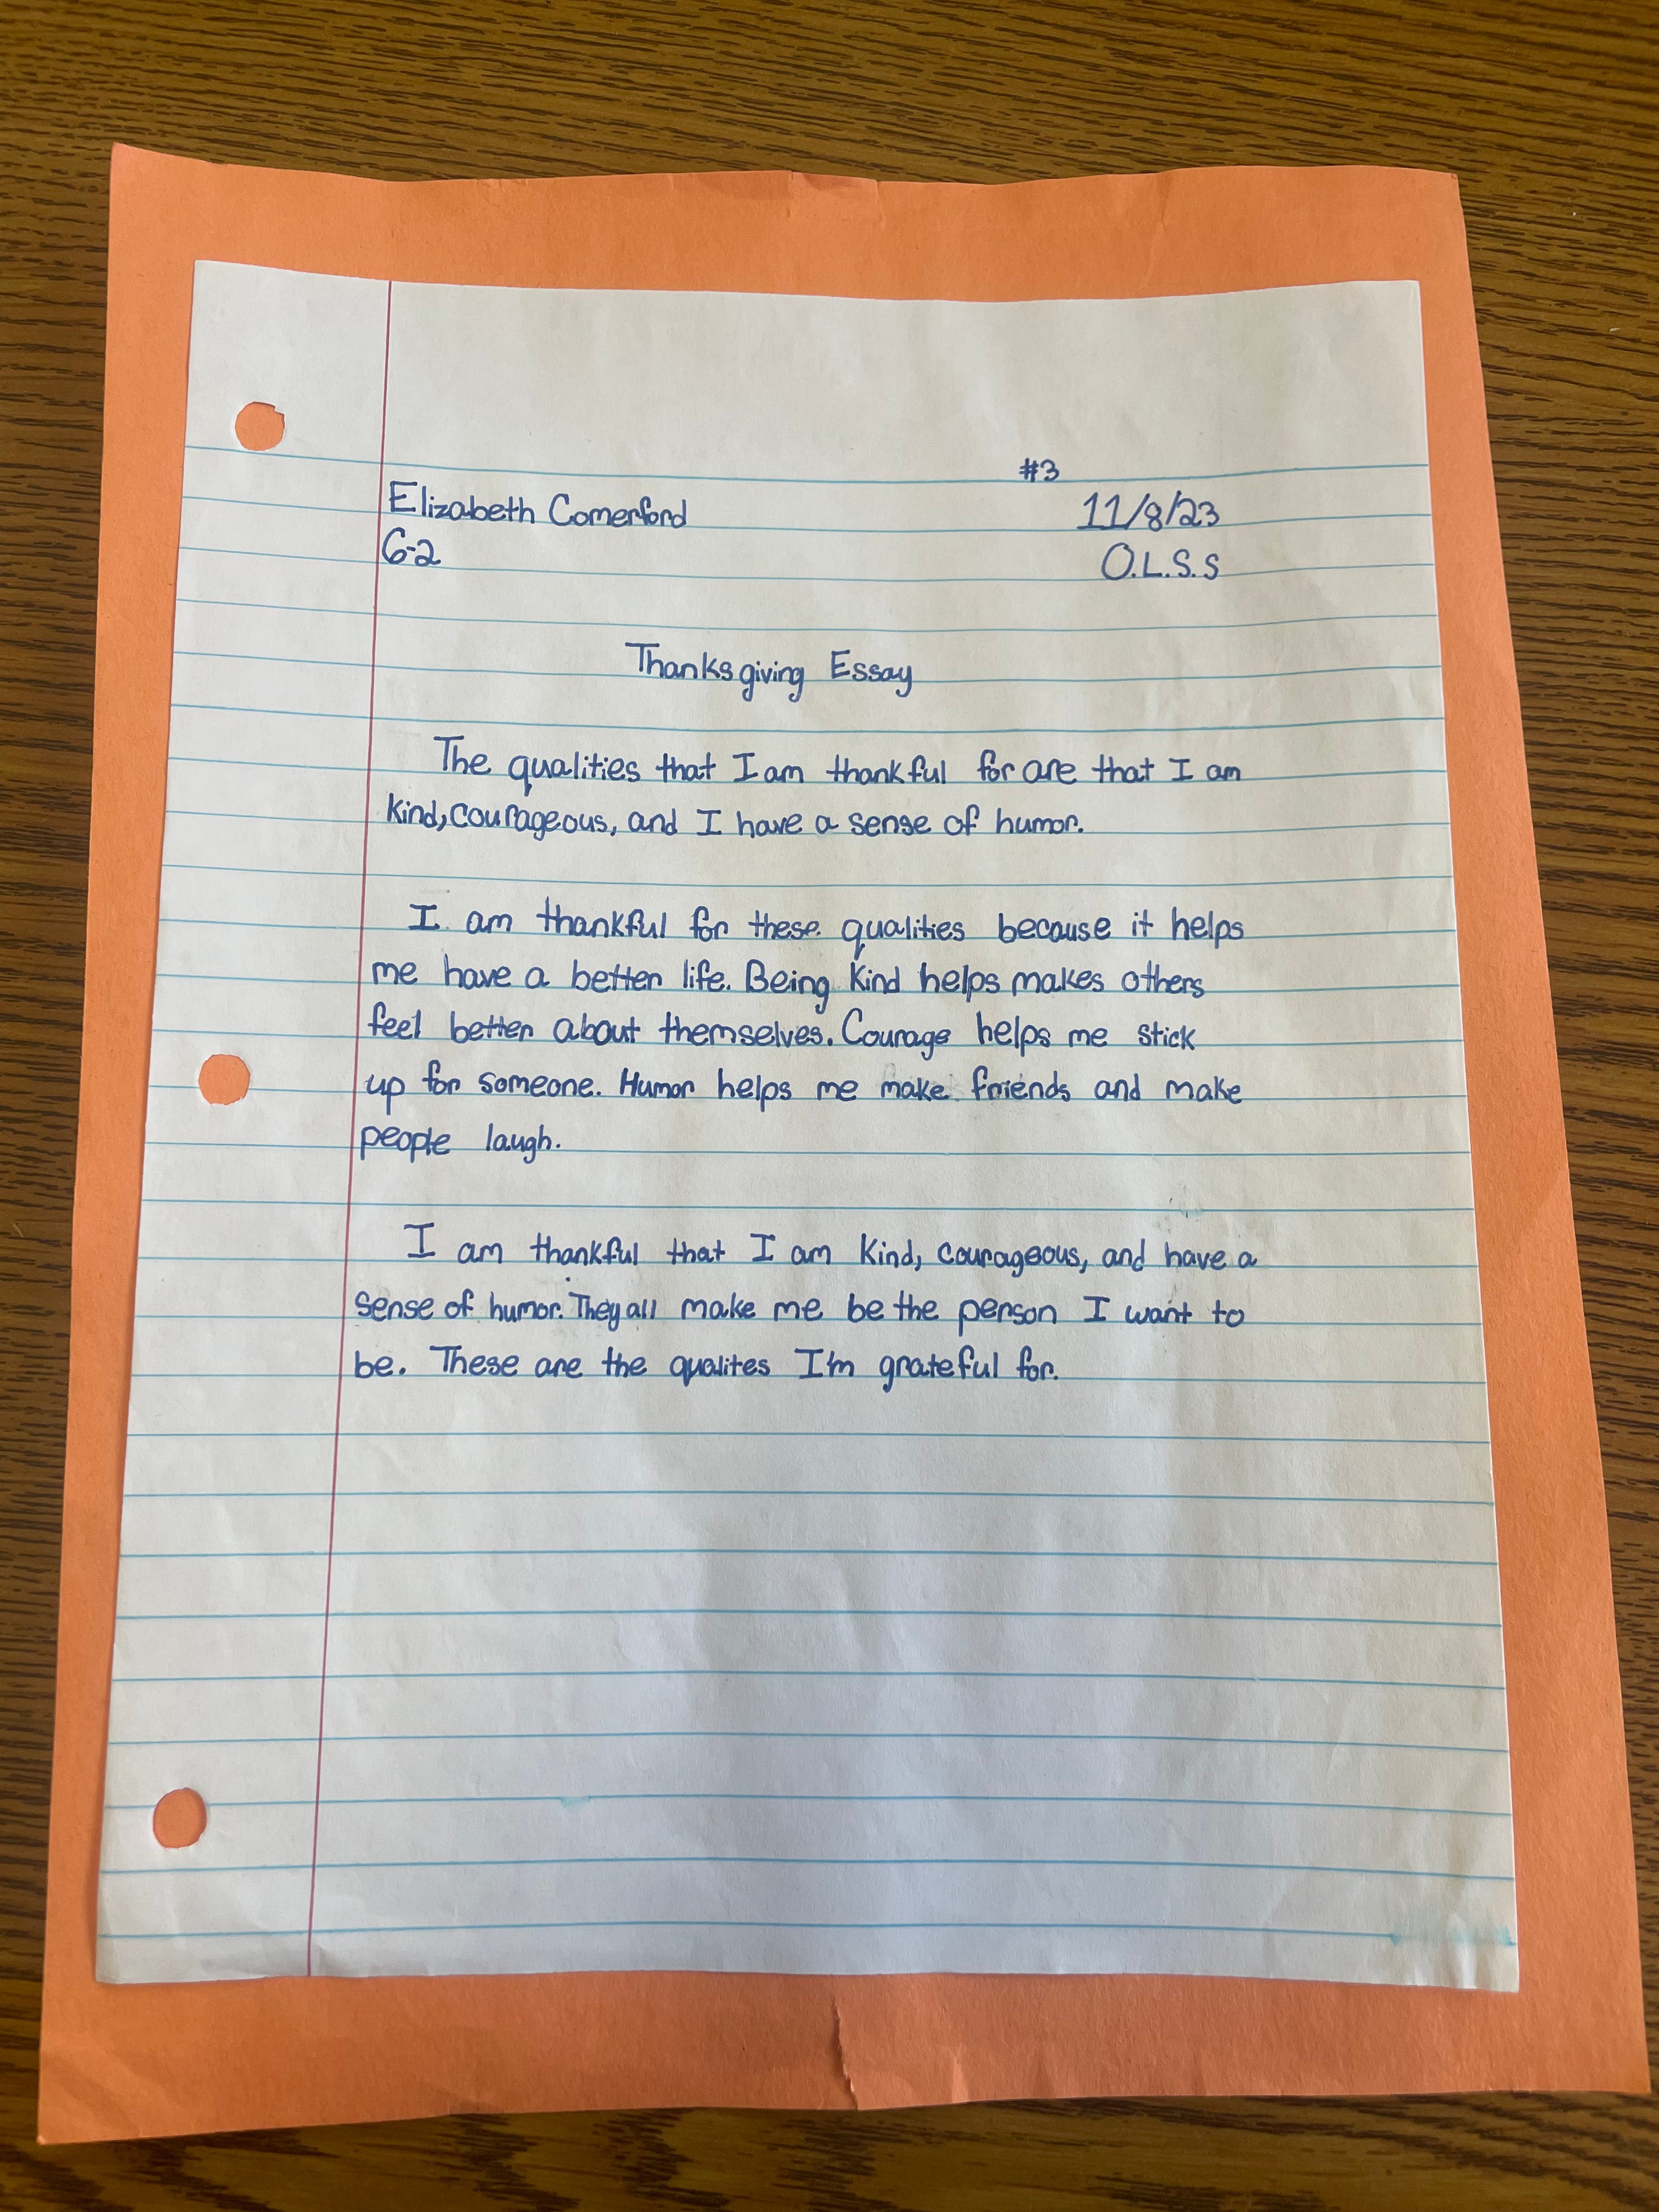 #3
Elizabeth Comerford 11/8/23
6-2 O.L.S.S
Thanksgiving Essay
The qualities that I am thankful for are that I am
kind, courageous, and I have a sense of humor.
I am thankful for these qualities because it helps
me have a better life. Being kind helps makes others
feel better about themselves. Courage helps me stick
up for someone. Humor helps me make friends and make
people laugh.
I am thankful that I am kind, courageous, and have a
sense of humor. They all make me be the person I want to
be. These are the qualites I'm grateful for.